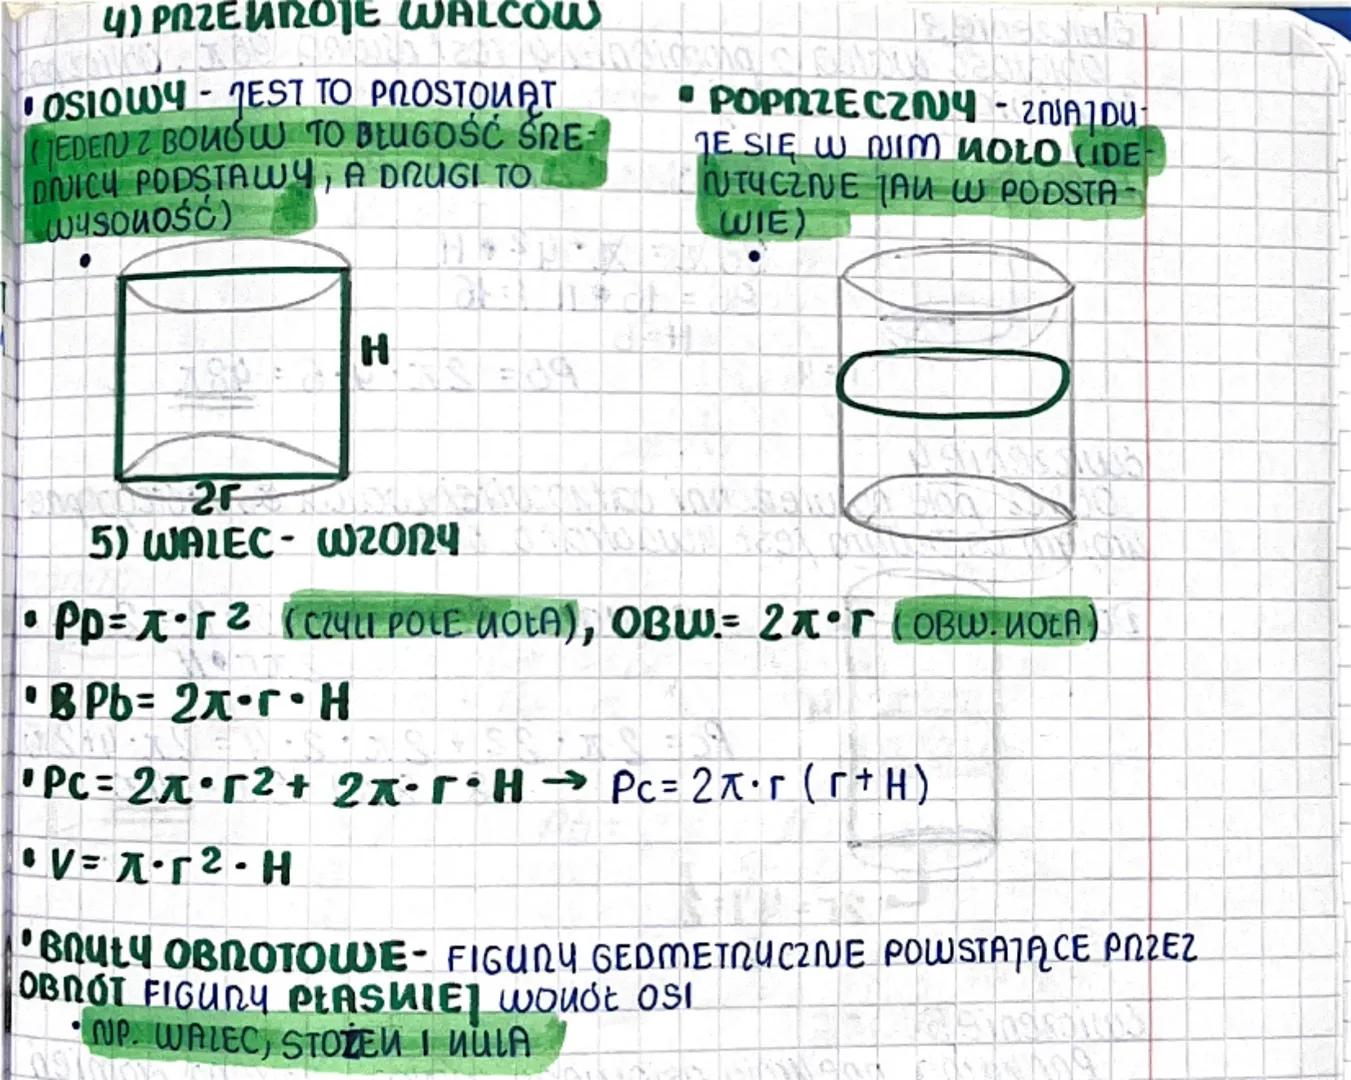 4) PRZEKROJE WALCÓW
• OSIOWY - JEST TO PROSTOKĄT
(JEDEN Z BOKÓW TO DŁUGOŚĆ ŚRE-
DNICY PODSTAWY, A DRUGI TO
WYSOKOŚĆ)
• POPRZECZNY - ZNAJDU-
JE SIĘ W NIM KOŁO (IDE-
NTYCZNE JAK W PODSTA-
WIE)
H
2r
5) WALEC - WZORY
• Pp = π · r² (CZYLI POLE KOŁA), OBW. = 2π · r (OBW. KOŁA)
• Pb = 2π · r · H
• Pc = 2π · r² + 2π · r · H → Pc = 2π · r (r + H)
• V = π · r² · H
• BRYŁY OBROTOWE - FIGURY GEOMETRYCZNE POWSTAJĄCE PRZEZ
OBRÓT FIGURY PŁASKIEJ WOKÓŁ OSI
• NP. WALEC, STOŻEK I KULA